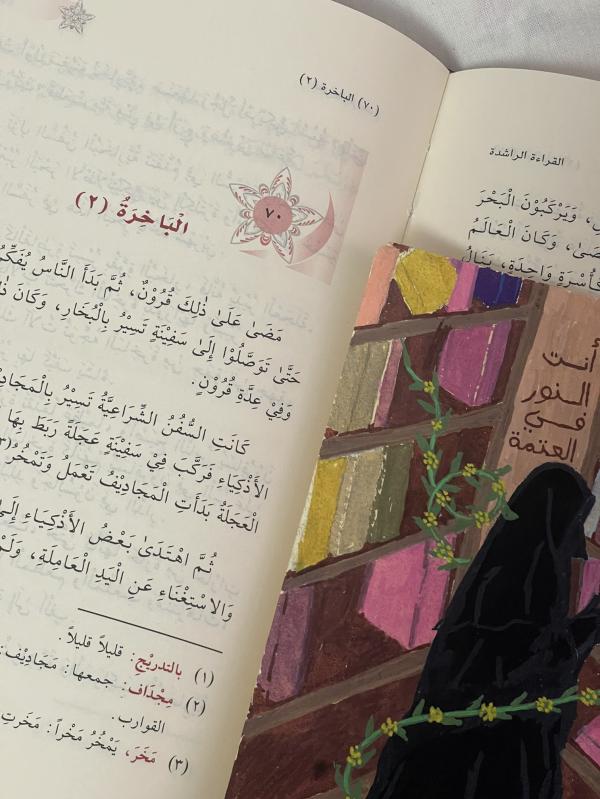 (٧٠) الباخرة (٢)
٧٠
الْبَاخِرَةُ (٢)
مَضَى عَلَى ذٰلِكَ قُرُوْنٌ، ثُمَّ بَدَأَ النَّاسُ
حَتَّى تَوَصَّلُوْا إِلَى سَفِيْنَةٍ تَسِيْرُ بِالْبُخَارِ، وَكَانَ
وَفِيْ عِدَّةِ قُرُوْنٍ.
كَانَتِ السُّفُنُ الشِّرَاعِيَّةُ تَسِيْرُ
الأَذْكِيَاءِ فَرَكَّبَ فِيْ سَفِيْنَةٍ عَجَلَةً رَبَطَ بِهَا
الْعَجَلَةُ بَدَأَتِ الْمَجَادِيْفُ تَعْمَلُ وَتَمْخُرُ
ثُمَّ اهْتَدَىٰ بَعْضُ الأَذْكِيَاءِ
وَالاسْتِغْنَاءِ عَنِ الْيَدِ الْعَامِلَةِ، وَلَمْ
(١) بالتدريْجِ: قليلاً قليلاً.
(٢) مِجْدَاف: جمعها: مَجَادِيْف:
القوارب.
(٣) مَخَرَ، يَمْخُرُ مَخْراً: مَخَرتِ
القراءة الراشدة
وَيَرْكَبُوْنَ الْبَحْرَ
وَكَانَ الْعَالَمُ
وَاحِدَةٍ،
أنت
النور
في
العتمة